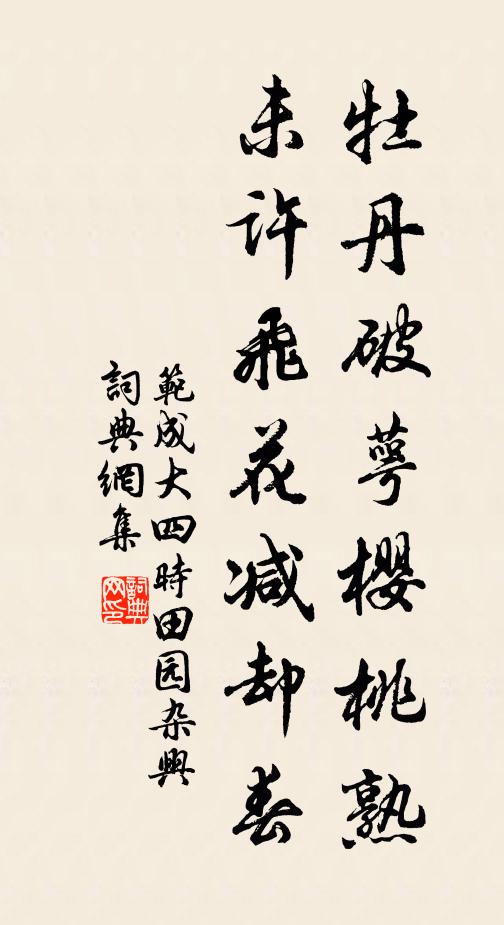 牡丹破萼櫻桃熟
未許飛花减却春
範成大四時田园杂興
詞典網集
詞典
网印